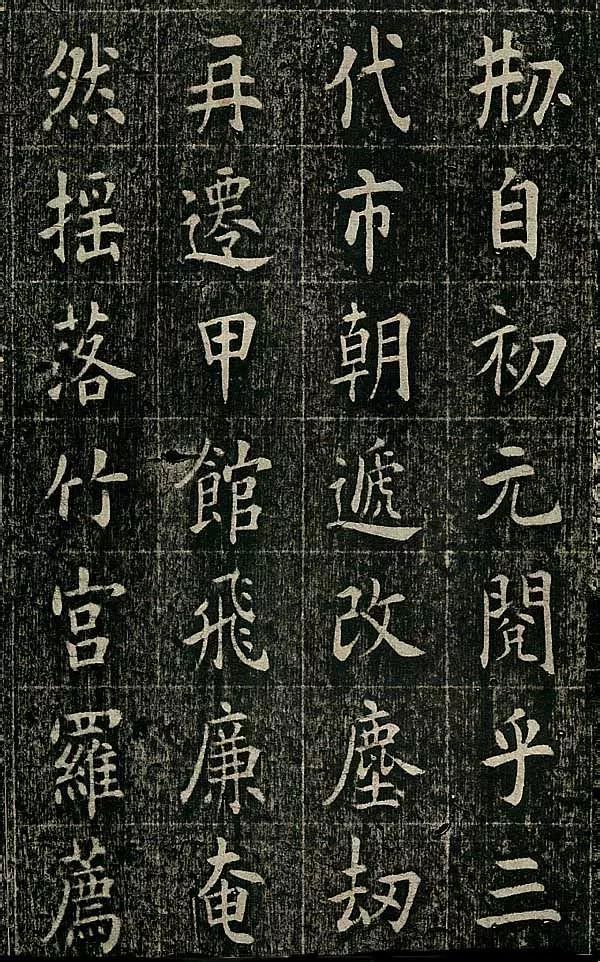 刱自初元閱乎三
代市朝遞改塵刧
再遷甲館飛廉奄
然揺落竹宮羅薦